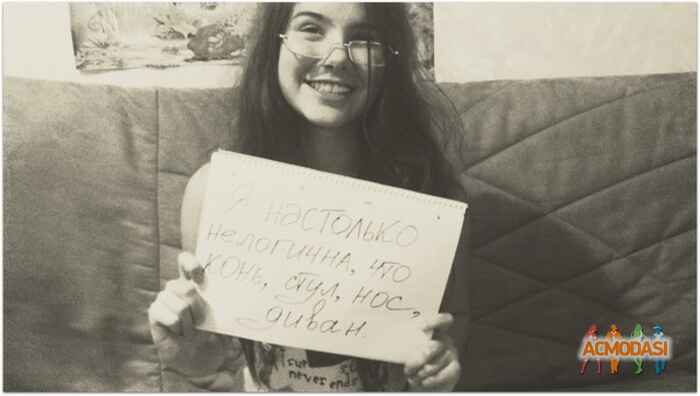 Я настолько
нелогична, что
конь, стул, нос,
диван.
never ends
ACMODASI